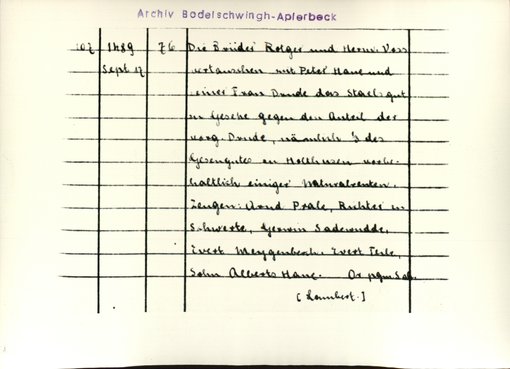 Archiv Bodelschwingh-Apferbeck
107 1489 76 Die Brüder Rotger und Herm. Voss
Sept. 17 vertauschen mit Peter Hane und
seiner Frau Drude das Staelsgut
in Gesche gegen den Anteil der
vorg. Drude, nämlich ⅓ des
Gesengutes in Holthusen vorbe-
haltlich einiger Naturalrenten.
Zeugen: Arnd Prale, Richter in
Schwerte, Gerwin
Evert Meygenberch, Evert
Sohn Alberts Hane. Or. pgm.
(Lambert.)